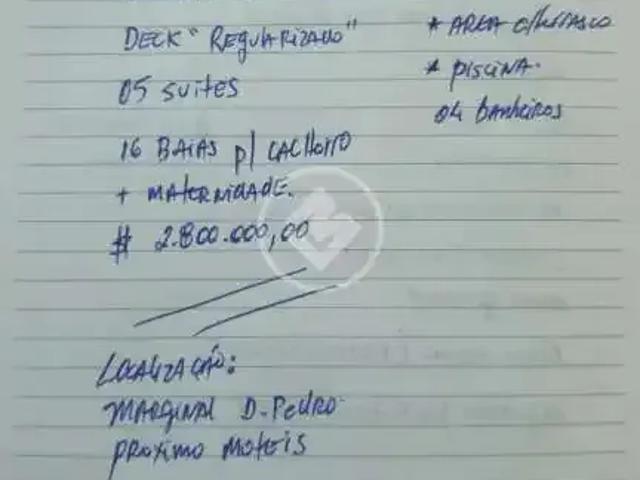 DECK "REGULARIZADO"
05 SUITES
16 BAIAS p/ CACHORRO
+ MATERNIDADE.
# 2.800.000,00
LOCALIZAÇÃO:
MARGINAL D. PEDRO
PROXIMO MOTEIS
* AREA c/ churrasco
* PISCINA.
04 banheiros